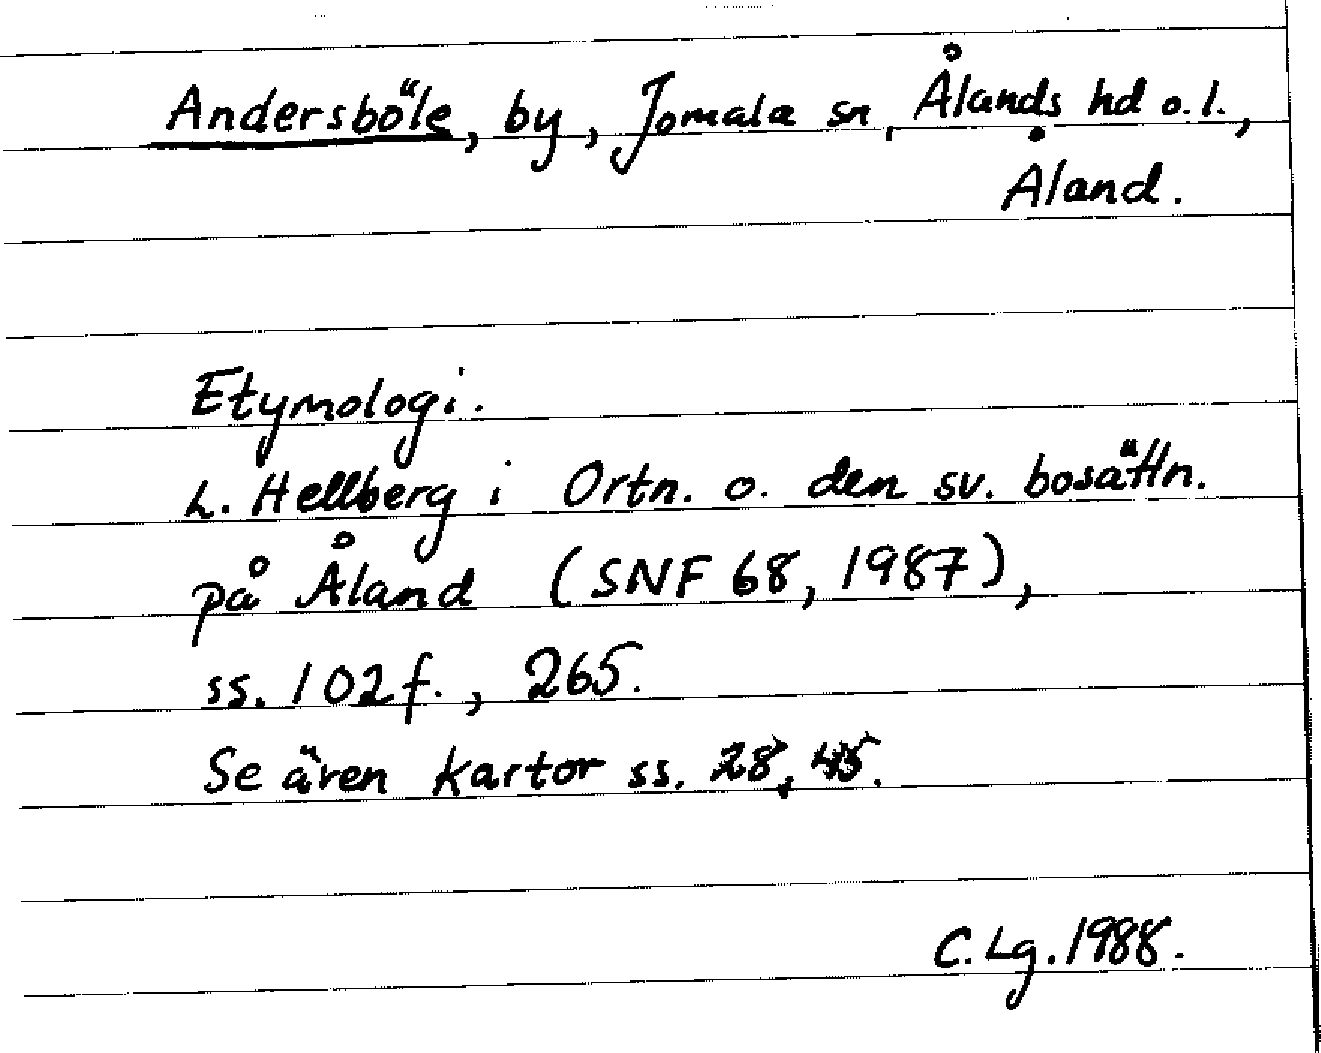 Andersböle, by, Jomala sn, Ålands hd o. l.,
Åland.
Etymologi.
L. Hellberg i Ortn. o. den sv. bosättn.
på Åland (SNF 68, 1987),
ss. 102 f., 265.
Se även kartor ss. 28, 45.
C. Lg. 1988.